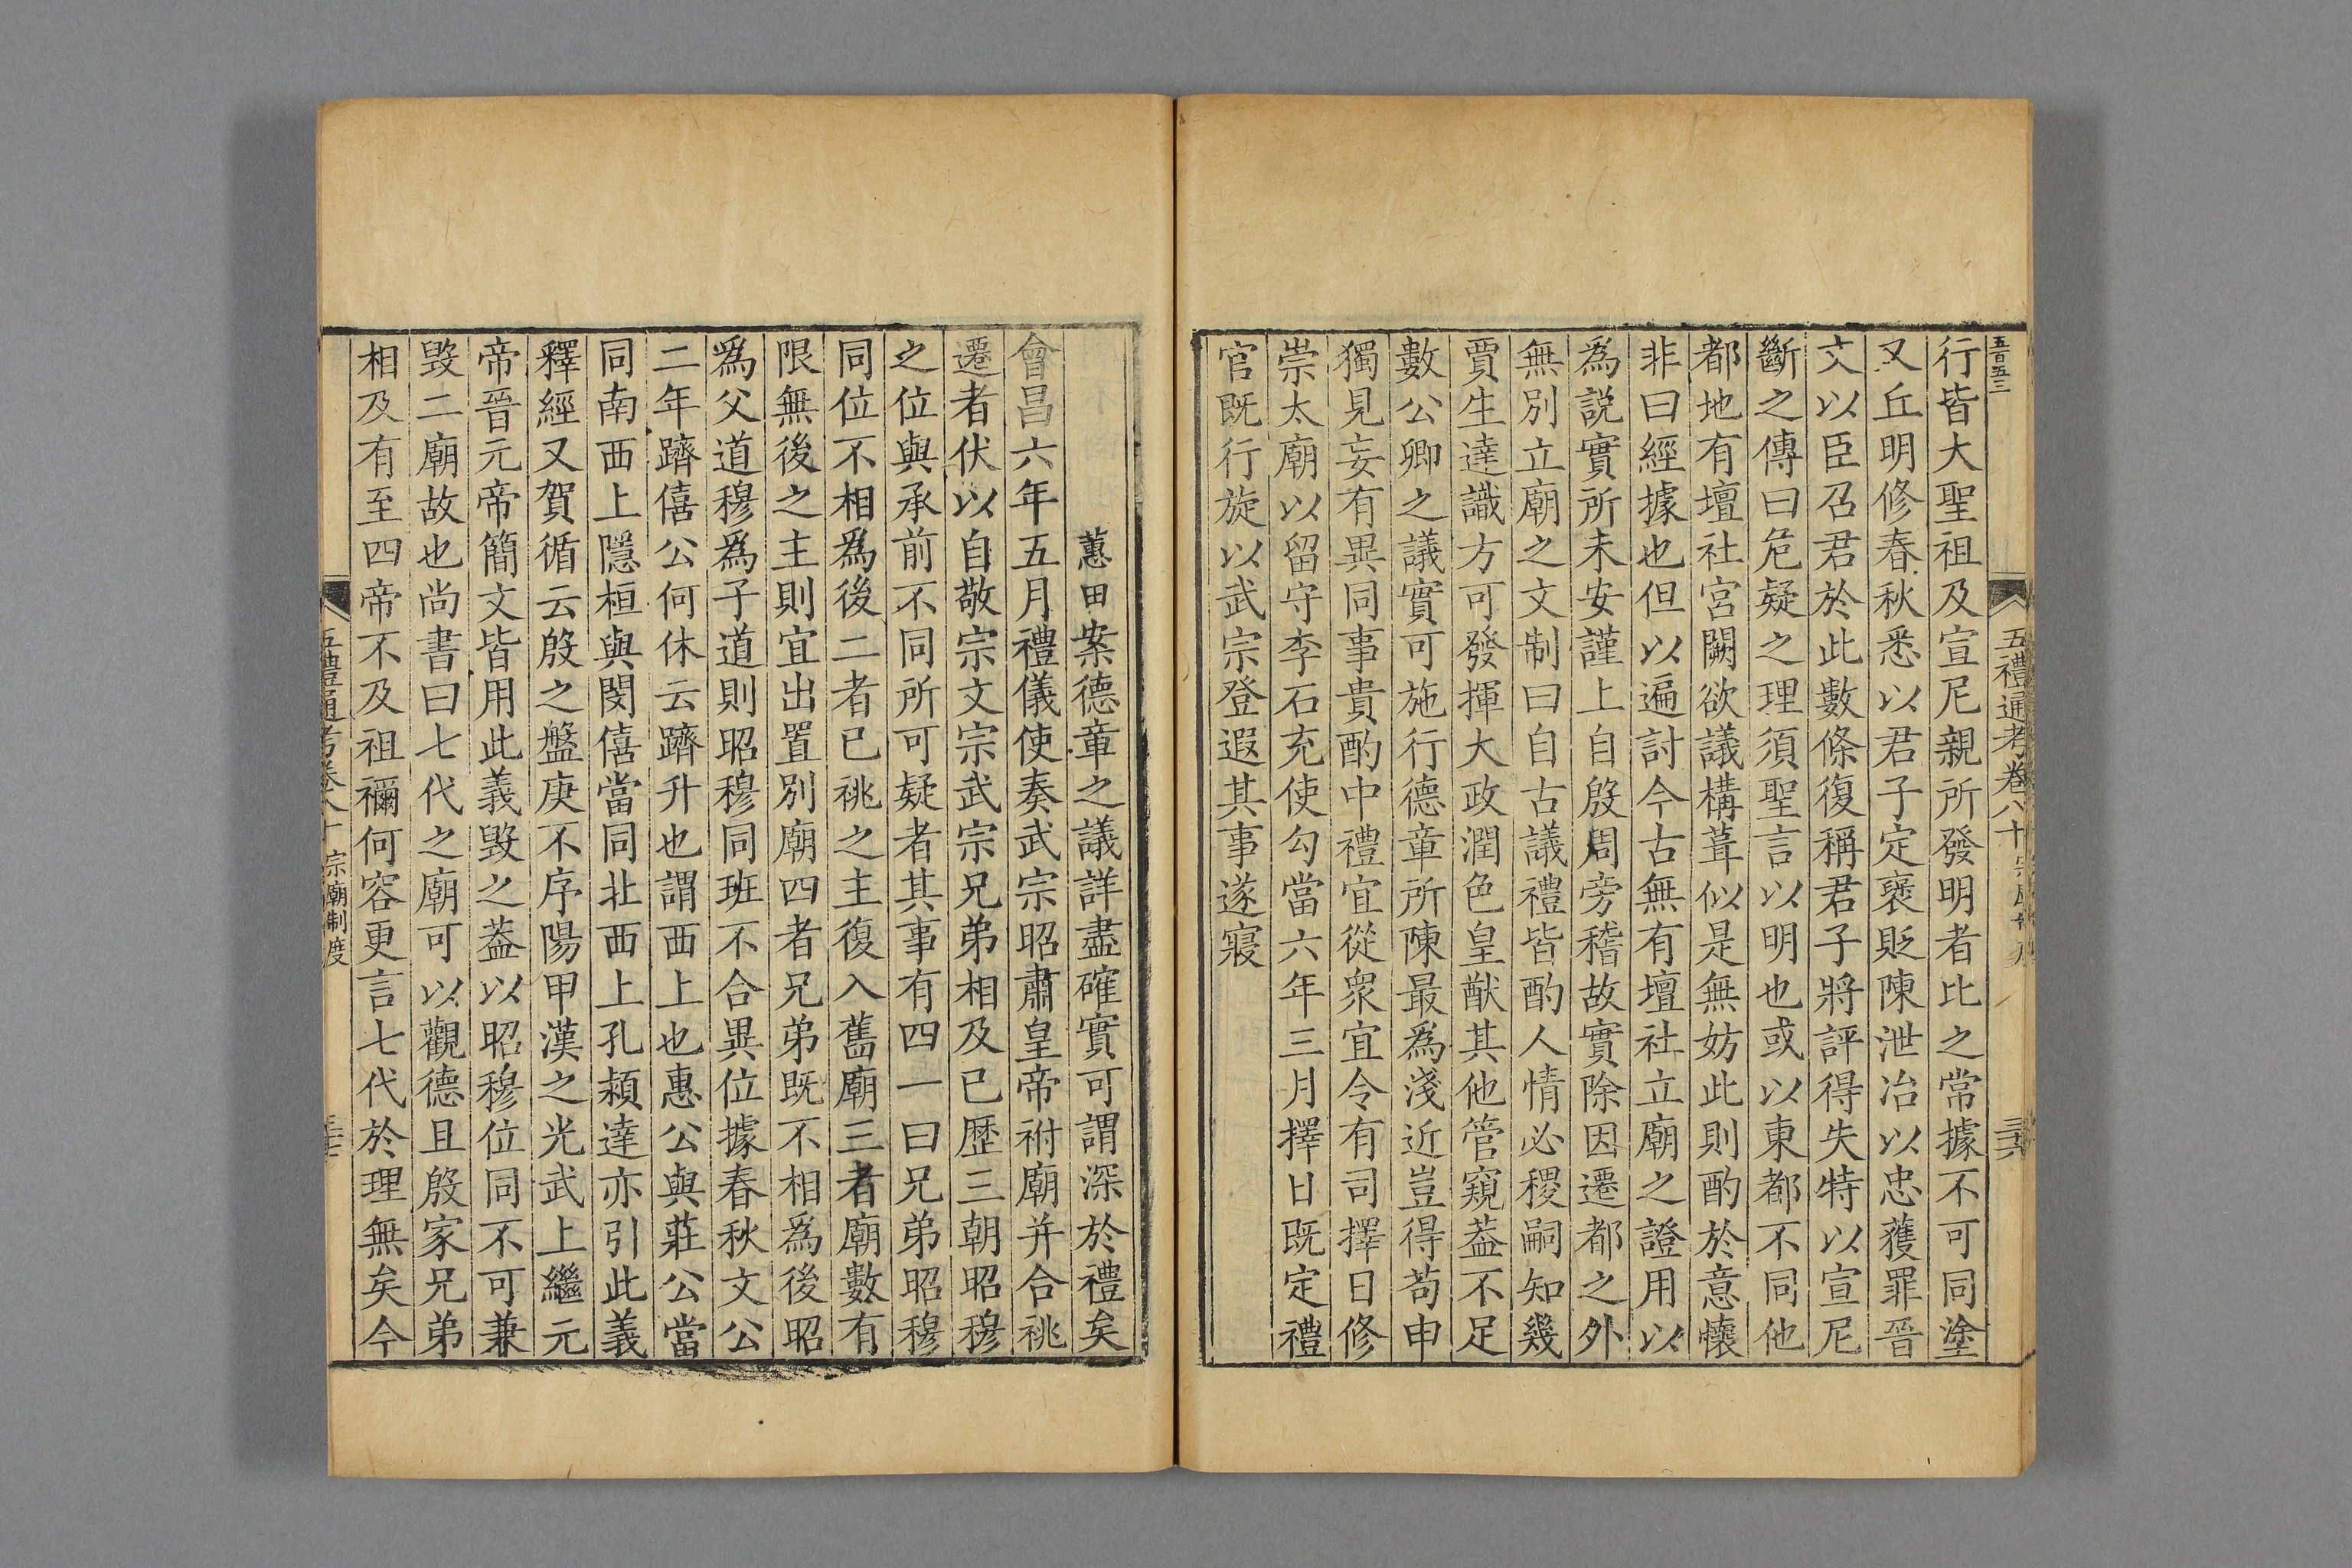 五百五三
五禮通考卷八十
三六
行皆大聖祖及宣尼親所發明者比之常據不可同塗
又丘明修春秋悉以君子定襃貶陳泄冶以忠獲罪晉
文以臣召君於此數條復稱君子將評得失特以宣尼
斷之傳曰危疑之理須聖言以明也或以東都不同他
都地有壇社宮闕欲議構葺似是無妨此則酌於意懷
非曰經據也但以遍討今古無有壇社立廟之證用以
為説實所未安謹上自殷周旁稽故實除因遷都之外
無別立廟之文制曰自古議禮皆酌人情必稷嗣知幾
賈生達識方可發揮大政潤色皇猷其他管窺葢不足
數公卿之議實可施行德章所陳最爲淺近豈得苟申
獨見妄有異同事貴酌中禮宜從衆宜令有司擇日修
崇太廟以留守李石充使勾當六年三月擇日既定禮
官既行旋以武宗登遐其事遂寢
蕙田案德章之議詳盡確實可謂深於禮矣
會昌六年五月禮儀使奏武宗昭肅皇帝祔廟并合祧
遷者伏以自敬宗文宗武宗兄弟相及已歷三朝昭穆
之位與承前不同所可疑者其事有四一曰兄弟昭穆
同位不相爲後二者已祧之主復入舊廟三者廟數有
限無後之主則宜出置別廟四者兄弟既不相爲後昭
爲父道穆爲子道則昭穆同班不合異位據春秋文公
二年躋僖公何休云躋升也謂西上也惠公與莊公當
同南西上隱桓與閔僖當同北西上孔潁達亦引此義
釋經又賀循云殷之盤庚不序陽甲漢之光武上繼元
帝晉元帝簡文皆用此義毀之葢以昭穆位同不可兼
毀二廟故也尚書曰七代之廟可以觀德且殷家兄弟
相及有至四帝不及祖禰何容更言七代於理無矣今
五禮通考卷八十 宗廟制度